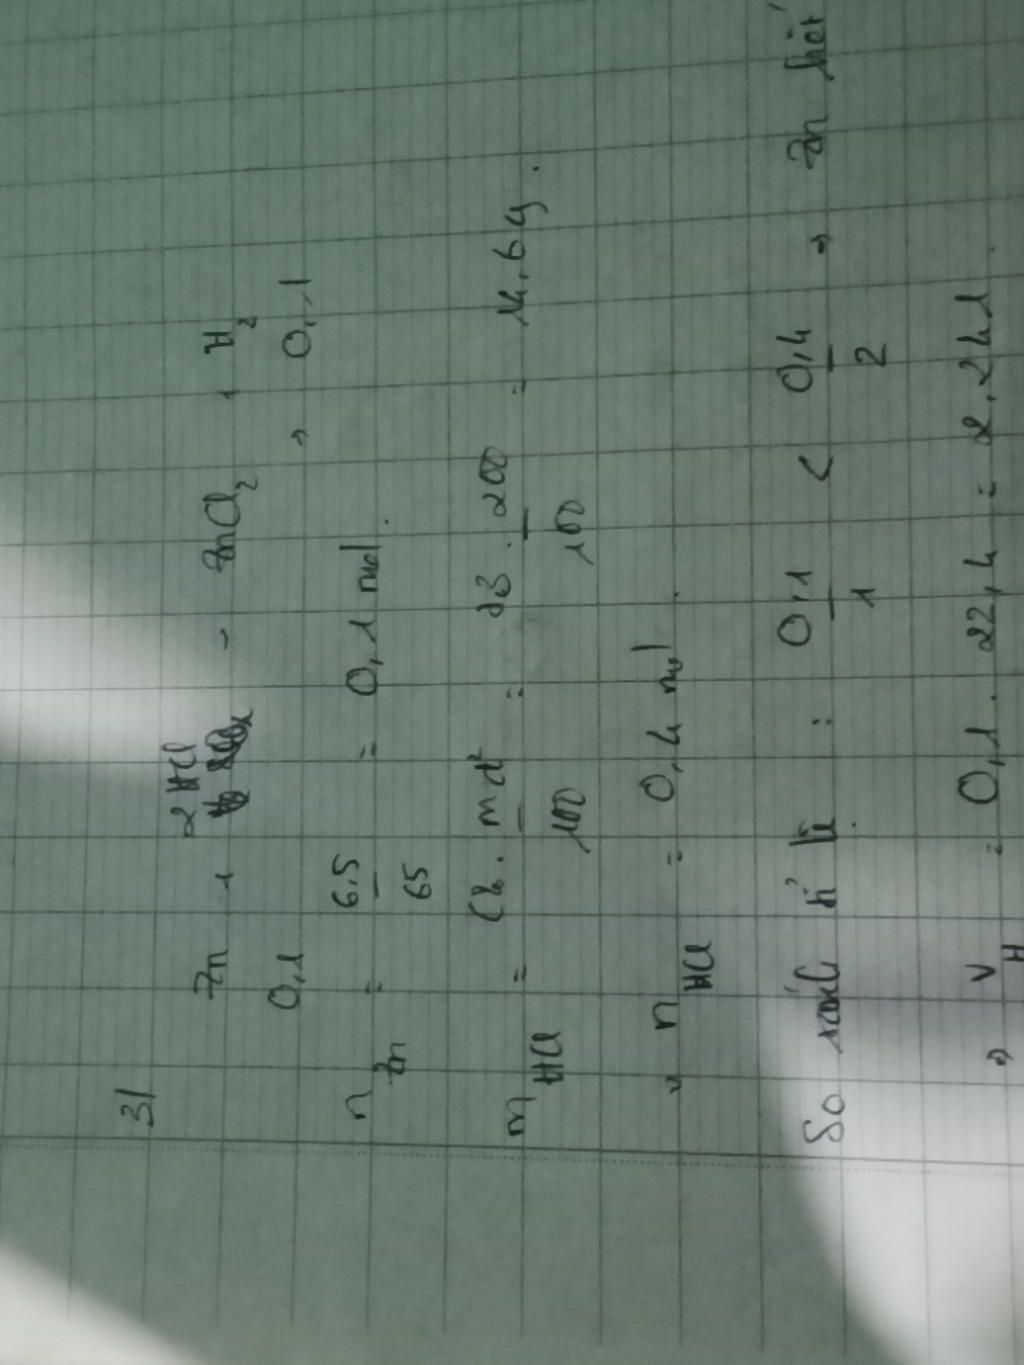 3/
Zn + 2HCl → ZnCl2 + H2
0,1 → 0,1
n Zn = 6,5 / 65 = 0,1 mol.
m HCl = C%. mdd / 100 = 7,3 . 200 / 100 = 14,6g.
n HCl = 0,4 mol.
So sánh tỉ lệ : 0,1 / 1 < 0,4 / 2 → Zn hết
=> V H = 0,1 . 22,4 = 2,24l.